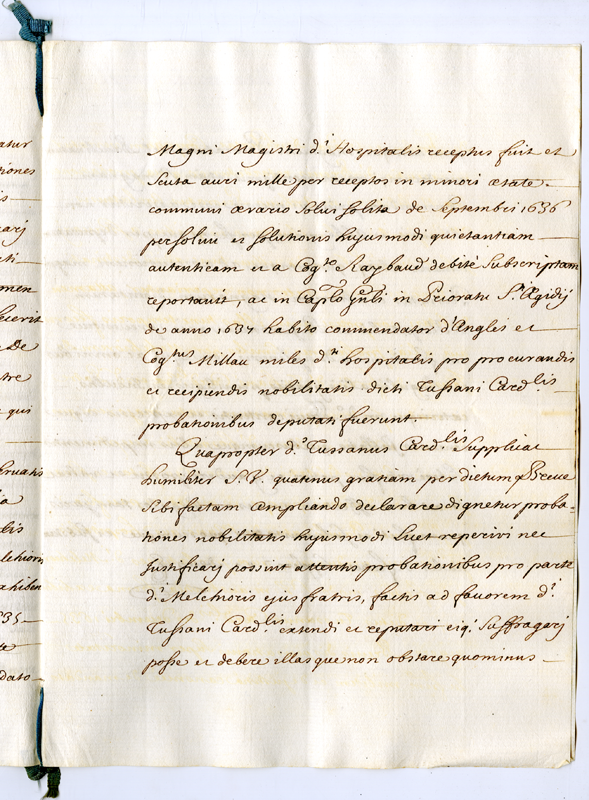 atur
tiones
is
arij
ti-
men
fecerit
De
tre
qui
ervatis
ia
lis
elchioris
exhiben
35
te
dato
Magni Magistri d.i Hospitalis receptus fuit et
scuta auri mille per receptos in minori ætate
communi ærario solui solita de Septembri 1636
persolvit et solutionis hujusmodi quietantiam
autenticam et a Cog.to Raybaud debitè subscriptam
reportavit, ac in Cap.lo Gn̄li in Prioratu S.ti Ægidij
de anno 1637 habito commendator d'Angles et
Cog.tus Millau miles d.ti hospitalis pro procurandis
et recipiendis nobilitatis dicti Tussani Card.lis
probationibus deputati fuerunt.
Quapropter d.s Tussanus Card.lis supplicat
humiliter S.V. quatenus gratiam per dictum Breve
sibi factam ampliando declarare dignetur proba-
tiones nobilitatis hujusmodi licet reperiri nec
justificarj possint attentis probationibus pro parte
d.i Melchioris ejus fratris, factis ad favorem d.i
Tussani Card.lis extendi et reputari eiq. suffragarj
posse et debere illasque non obstare quominus